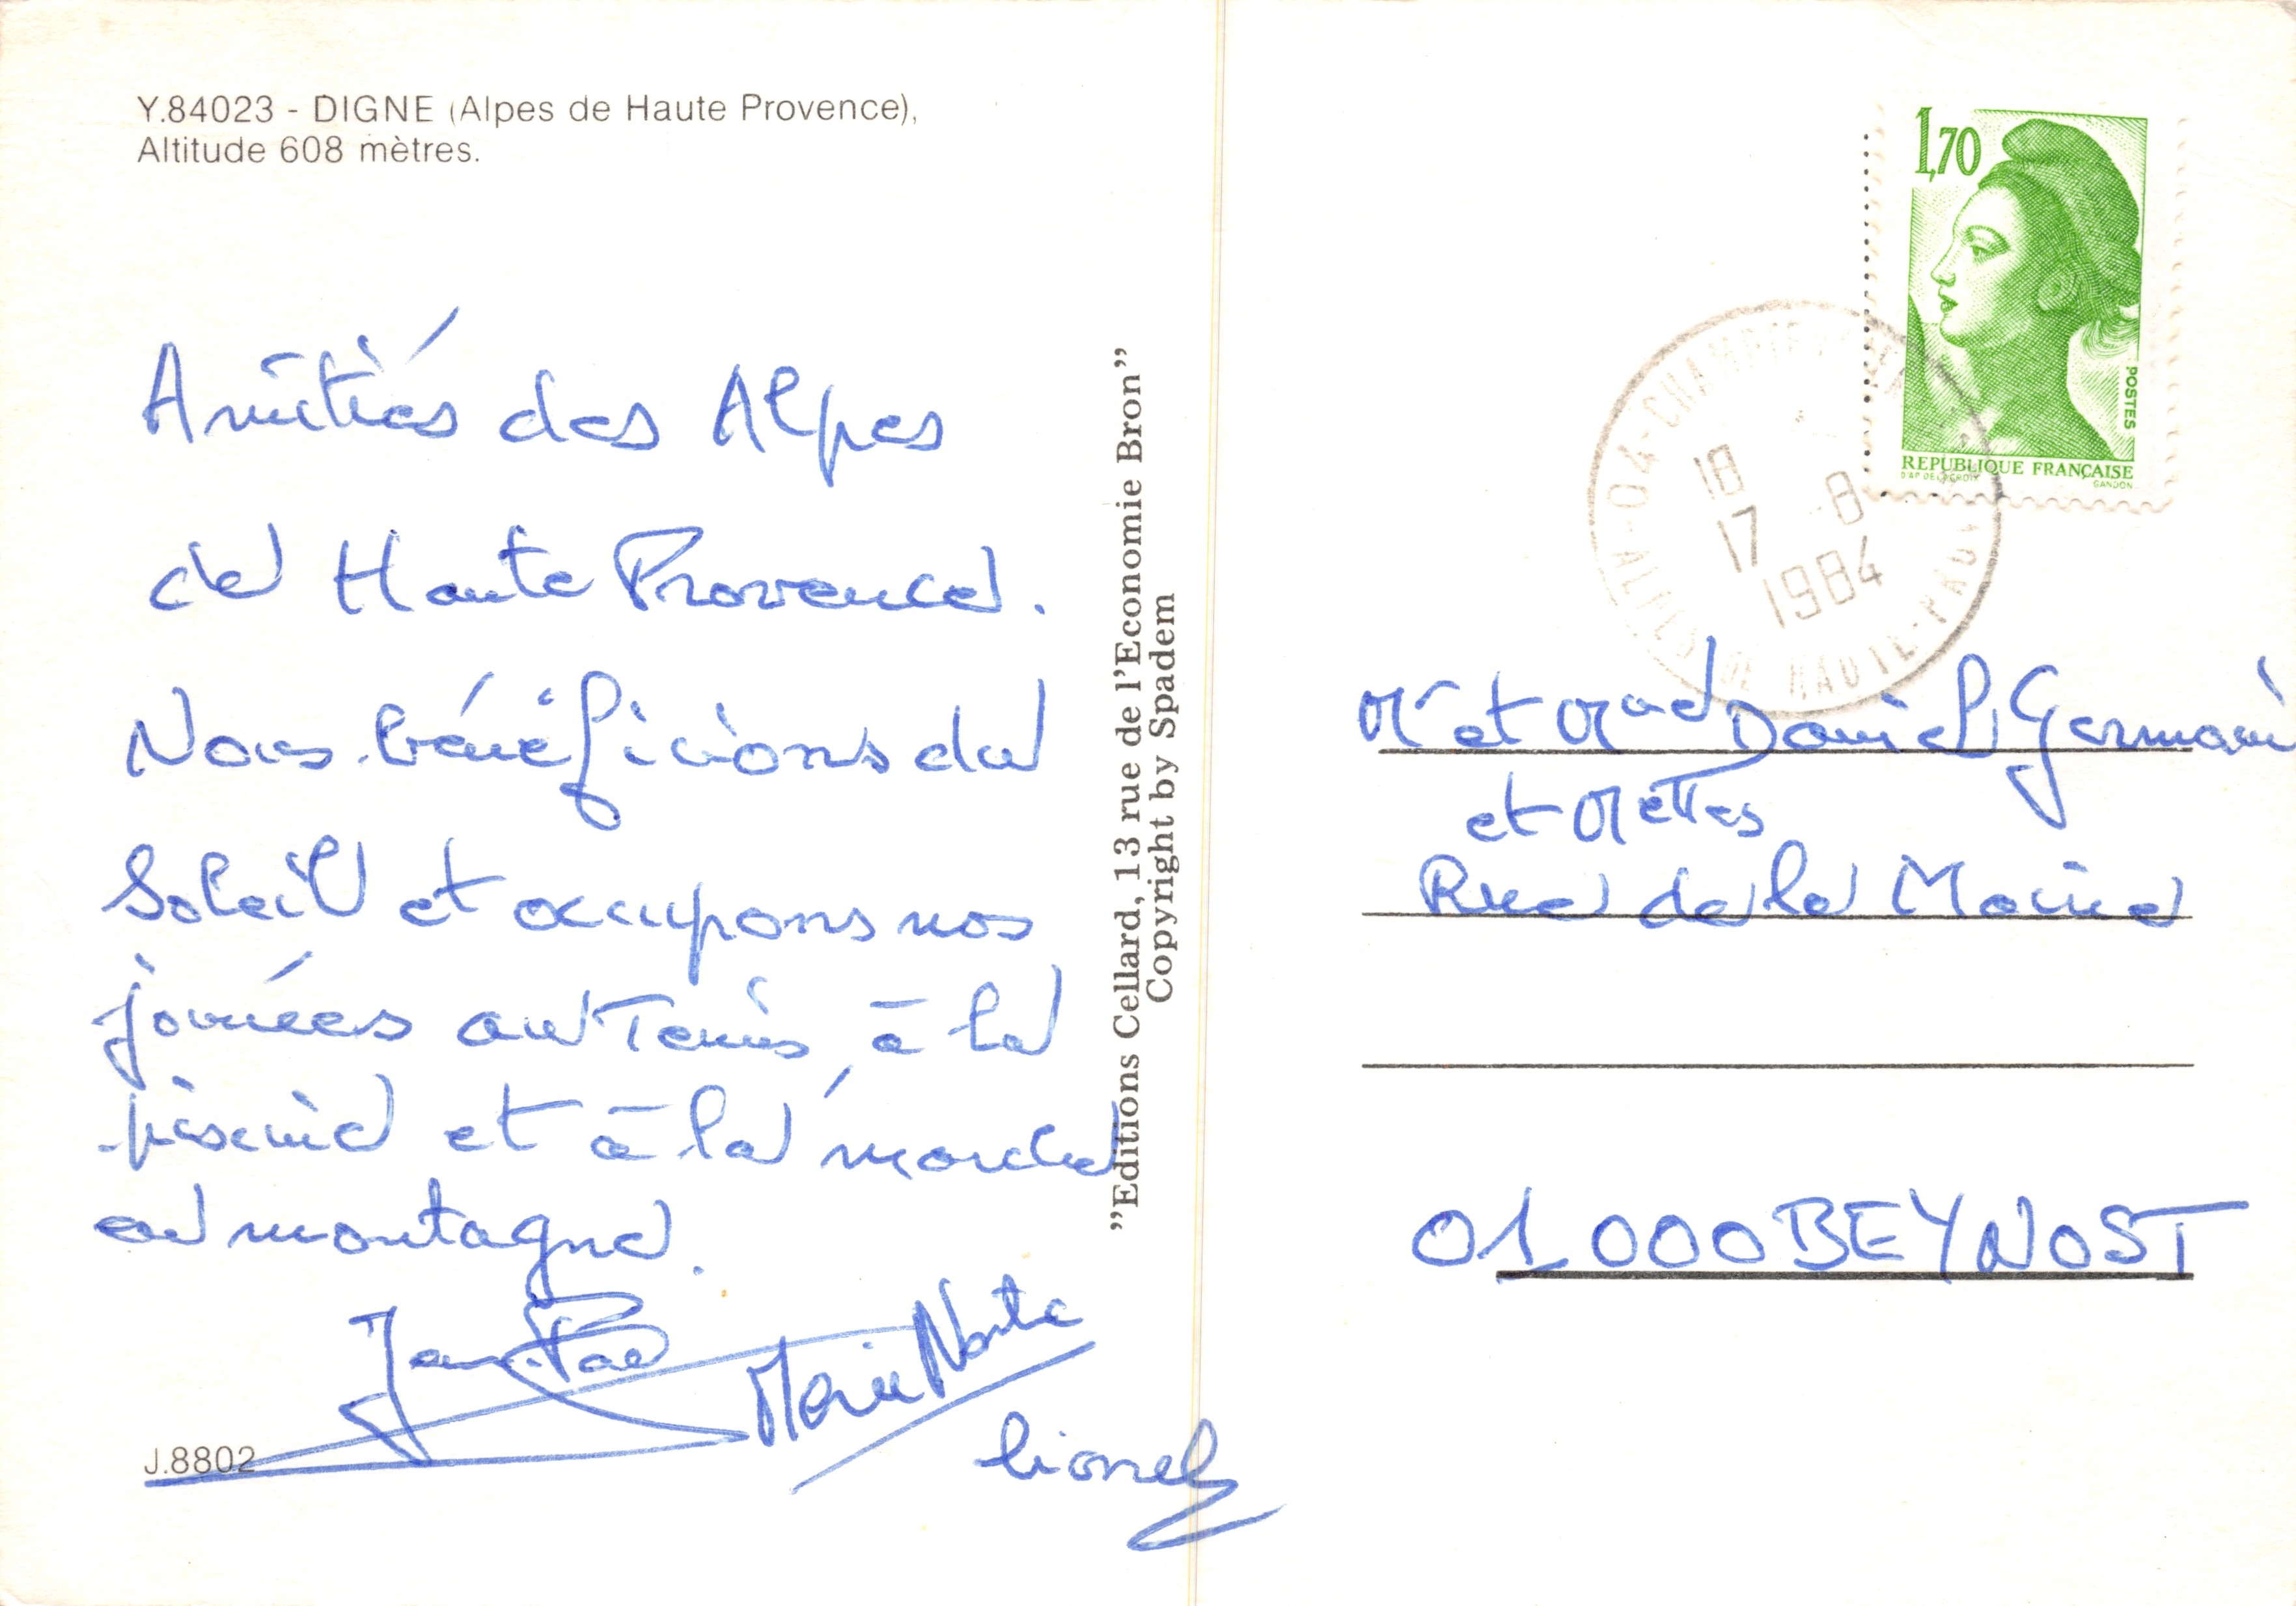 Y.84023 - DIGNE (Alpes de Haute Provence),
Altitude 608 mètres.
Amitiés des Alpes
de Haute Provence.
Nous bénéficions du
Soleil et occupons nos
journées au Tennis, à la
piscine et à la marche
en montagne.
Marie Noëlle
Lionel
J.8802
"Editions Cellard, 13 rue de l'Economie Bron"
Copyright by Spadem
1,70
POSTES
REPUBLIQUE FRANÇAISE
D'AP DELACROIX
GANDON
04-
ALPES DE HAUTE-PROV
18
17 -8
1984
Mr et Mad Daniel Germain
et Melles
Rue de la Mairie
01000 BEYNOST